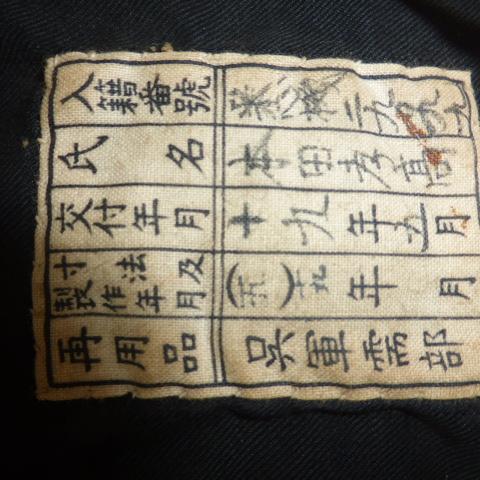 入籍番號
氏名 本田孝高
交付年月 十九年五月
寸法及製作年月 (五)十九年 月
再用品 呉軍需部